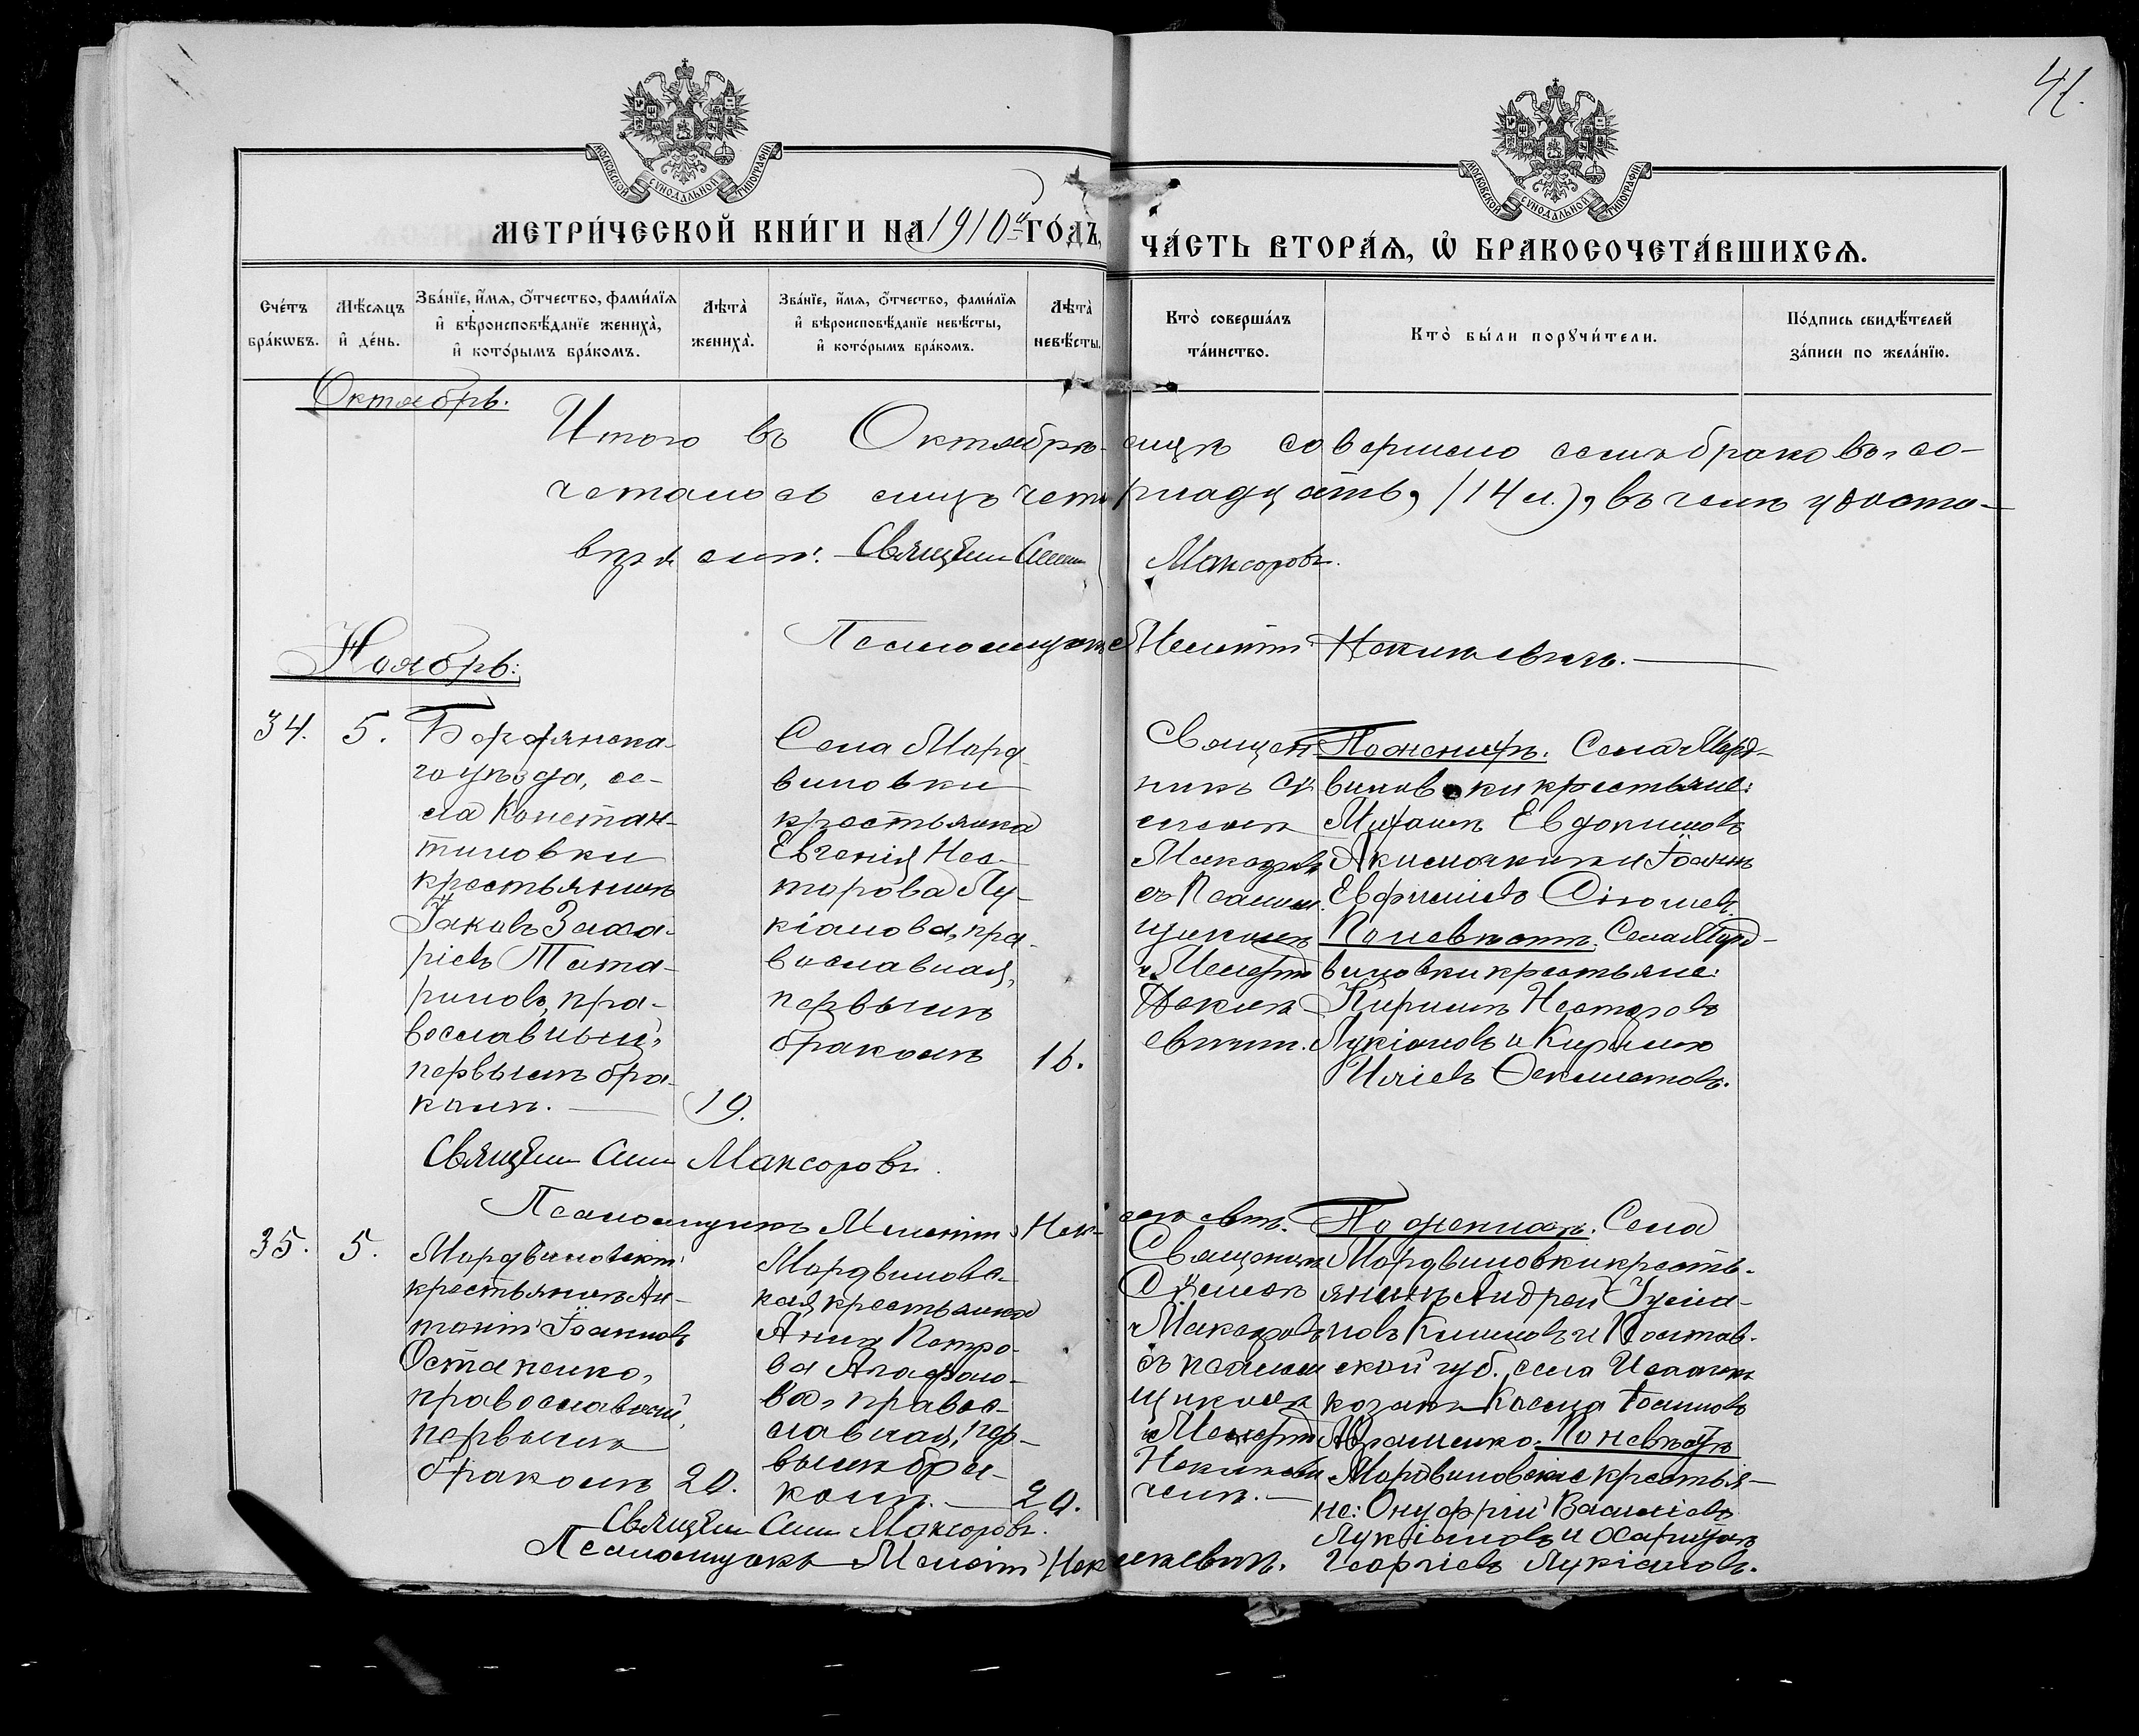 41.
МОСКОВСКОЙ СѴНОДАЛЬНОЙ ТИПОГРАФІИ
МОСКОВСКОЙ СѴНОДАЛЬНОЙ ТИПОГРАФІИ
МЕТРИ́ЧЕСКОЙ КНИ́ГИ НА 1910й ГО́ДЪ,
ЧА́СТЬ ВТОРА́Ѧ, Ѽ БРАКОСОЧЕТА́ВШИХСѦ.
Сче́тъ бра́кѡвъ.
Мѣ́сѧцъ и҆ де́нь.
Зва́нїе, и҆́мѧ, ѻ҆́тчество, фами́лїѧ и҆ вѣроисповѣ́данїе жениха̀, и҆ кото́рымъ бра́комъ.
Лѣта̀ жениха̀.
Зва́нїе, и҆́мѧ, ѻ҆́тчество, фами́лїѧ и҆ вѣроисповѣ́данїе невѣ́сты, и҆ кото́рымъ бра́комъ.
Лѣта̀ невѣ́сты.
Кто̀ соверша́лъ та́инство.
Кто̀ бы́ли порꙋчи́тели.
По́дпись свидѣ́телей за́писи по жела́нїю.
Октябрь.
Итого въ Октябрѣ мцѣ совершено семь браковъ, со-
четалось лицъ четырнадцать, (14 л.), въ чемъ удосто-
вѣряемъ: Священ. Симеон Макаровъ.
Псаломщикъ Мелетій
Ноябрь:
34.
5.
Бердянска-
го уѣзда, се-
ла Констан-
тиновки
крестьянинъ
Іаковъ Заха-
ріевъ Тата-
риновъ, пра-
вославный,
первымъ бра-
комъ.
19.
Села Морд-
виновки
крестьянка
Евгенія Нес-
торова Лу-
кіанова, пра-
вославная,
первымъ
бракомъ
16.
Священ-
никъ Си-
меонъ
Макаровъ
съ Псалом-
щикомъ
Мелетіе
По женихѣ: Села Морд-
виновки крестьяне:
Евдокимовъ
и Іоаннъ
По невѣстѣ: Села Морд-
виновки крестьяне:
Кириллъ Несторовъ
Лукіановъ и Кириллъ
Иліевъ
Священ. Симеон Макаровъ.
Псаломщикъ Мелетій
35.
5.
Мордвиновскій
крестьянинъ Ан-
тоній Іоанновъ
Остапенко,
православный,
первымъ
бракомъ
20.
Мордвиновс-
кая крестьянка
Анна Петро-
ва Агафоно-
ва, правос-
лавная, пер-
вымъ бра-
комъ.
20.
Священникъ
Симеонъ
Макаровъ
съ псалом-
щикомъ
Мелетіе
По женихѣ: Села
Мордвиновки кресть-
янинъ Андрей
Климовъ и Полтав-
ской губ. села
козакъ Косма Іоанновъ
Авраменко. По невѣстѣ
Мордвиновскіе крестья-
не: Онуфрій Василіевъ
Лукіановъ и Харитонъ
Георгіевъ Лукіановъ.
Священ. Симеон Макаровъ.
Псаломщикъ Мелетій